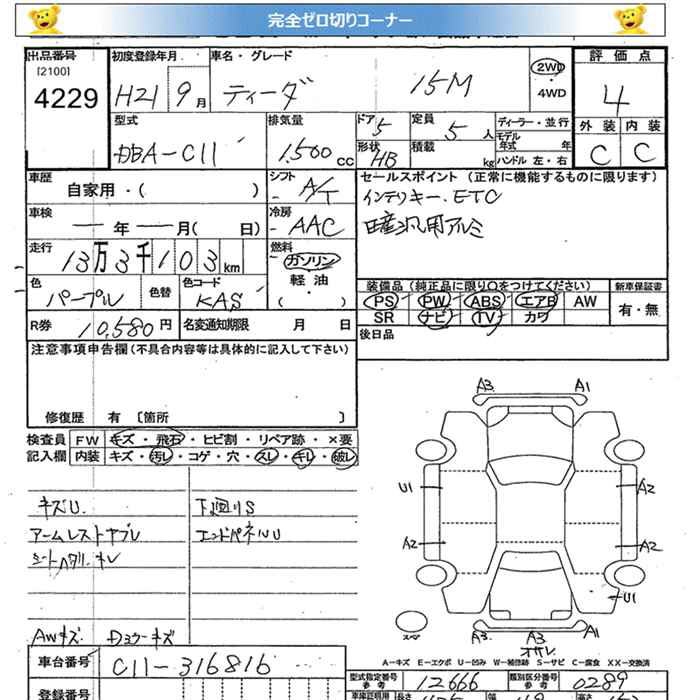 完全ゼロ切りコーナー
出品番号 初度登録年月 車名・グレード 評価点
[2100]
4229 H21 9月 ティーダ 15M 2WD・4WD 4
型式 排気量 ドア 5 定員 5人 ディーラー・並行 外装 内装
モデル年式 年
DBA-C11 1,500cc 形状 HB 積載 kg ハンドル 左・右 C C
車歴 シフト セールスポイント (正常に機能するものに限ります)
自家用・( ) - A/T インテリキー. ETC
車検 冷房
年 月( 日) - AAC 日産汎用アルミ
走行 燃料
13万3千103km ガソリン
軽油
・( )
色 色替 色コード 装備品(純正品に限り○をつけてください) 新車保証書
パープル KAS PS PW ABS エアB AW 有・無
SR ナビ TV カワ
R券 10,580円 名変通知期限 月 日 後日品
注意事項申告欄(不具合内容等は具体的に記入して下さい)
修復歴 有 [箇所 ]
検査員 FW キズ・飛石・ヒビ割・リペア跡・×要
記入欄 内装 キズ・汚レ・コゲ・穴・スレ・キレ・破レ
キズU. 下廻りS
アームレストヤブレ エンドパネルU
AWキズ
A3 A1
U1 A2
A2 A2
U1
A3 A3 A1
A-キズ E-エクボ U-凹み W-補修跡 S-サビ C-腐食 XX-交換済
車台番号 C11-316816
型式指定番号 参考 12666 類別区分番号 参考 0289
登録番号